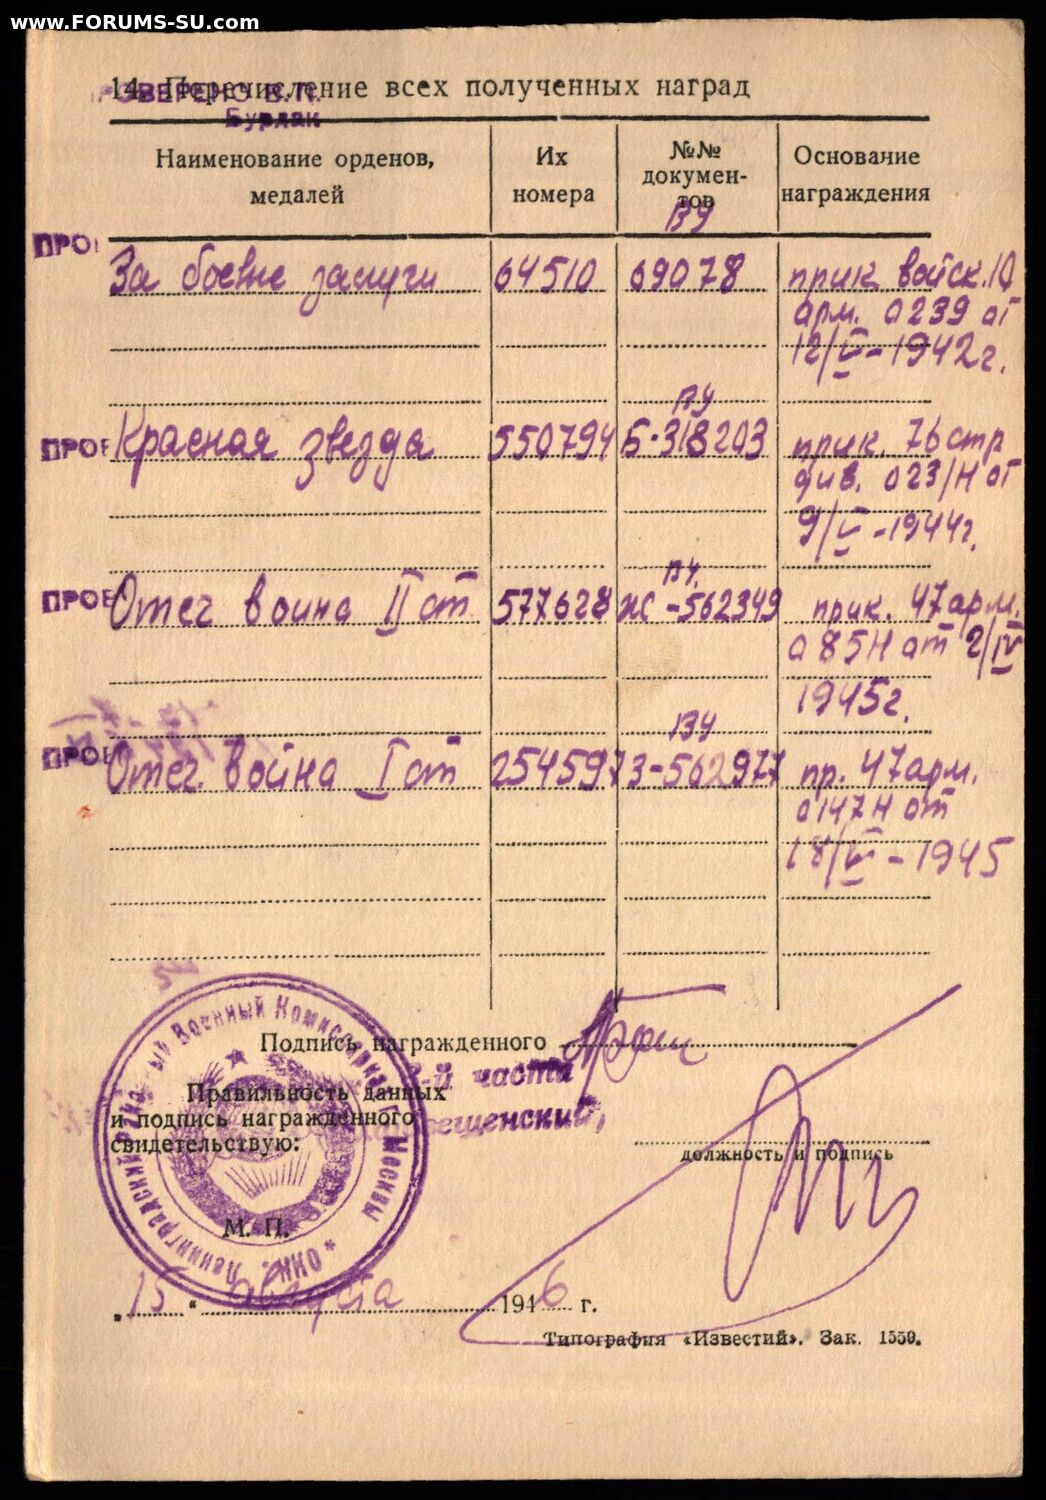 www.FORUMS-SU.com
14. Перечисление всех полученных наград
ПРОВЕРЕНО В.П.
Бурдак
Наименование орденов, медалей
Их номера
№№ документов
Основание награждения
ВУ
ПРО
За боевые заслуги 64510 69078 прик. войск. 10
арм. 0239 от
12/V-1942г.
ВУ
ПРОВ Красная звезда 550794 Б-318203 прик. 76 стр
див. 023/Н от
9/V-1944г.
ВУ
ПРОВ Отеч война II ст 577628 Ж-562349 прик. 47 арм.
085Н от 2/IV
1945г.
ВУ
ПРОВ Отеч. война I ст 254597 З-562977 пр. 47 арм.
0147Н от
18/V-1945
Подпись награжденного
-й части
Правильность данных
и подпись награжденного
свидетельствую:
ещенский
должность и подпись
Ленинградский Районный Военный Комиссариат г. Москвы
СССР
М. П.
„15“ августа 1946 г.
Типография «Известий». Зак. 1559.